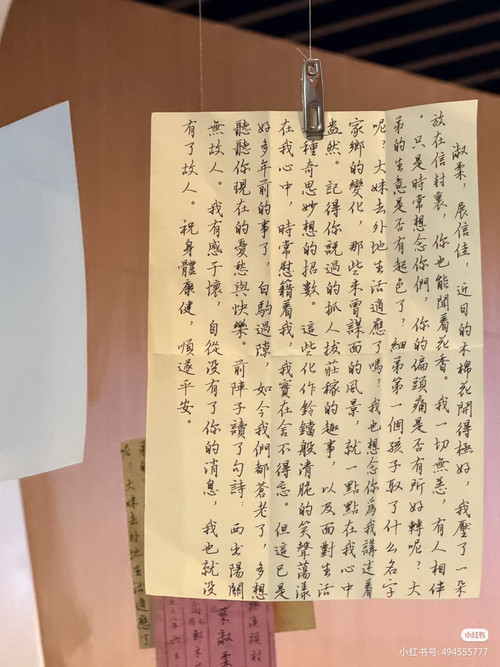 淑柔,展信佳,近日的木棉花開得極好,我壓了一朵
放在信封裏,你也能聞着花香。我一切無恙,有人相伴
。只是時常想念你們,你的偏頭痛是否有所好轉呢?大
弟的生意是否有起色了?細弟第一個孩子取了什么名字
呢?大妹去外地生活適應了嗎?我也想念你為我講述着
家鄉的變化,那些未曾謀面的風景,就一點點在我心中
盎然。記得你說過的抓人拔莊稼的趣事,以及面對生活
種奇思妙想的招數。這些化作鈴鐺般清脆的笑聲蕩漾
在我心中,時常慰藉着我,我實在舍不得忘。但這已是
好多年前的事了,白駒過隙,如今我們都蒼老了,多想
聽聽你現在的憂愁與快樂。前陣子讀了句詩:西出陽關
無故人。我有感于懷,自從没有了你的消息,我也就没
有了故人。祝身體康健,順遂平安。
呢?大妹去外地生活適應了
淑柔
小红书
小红书号: 494555777